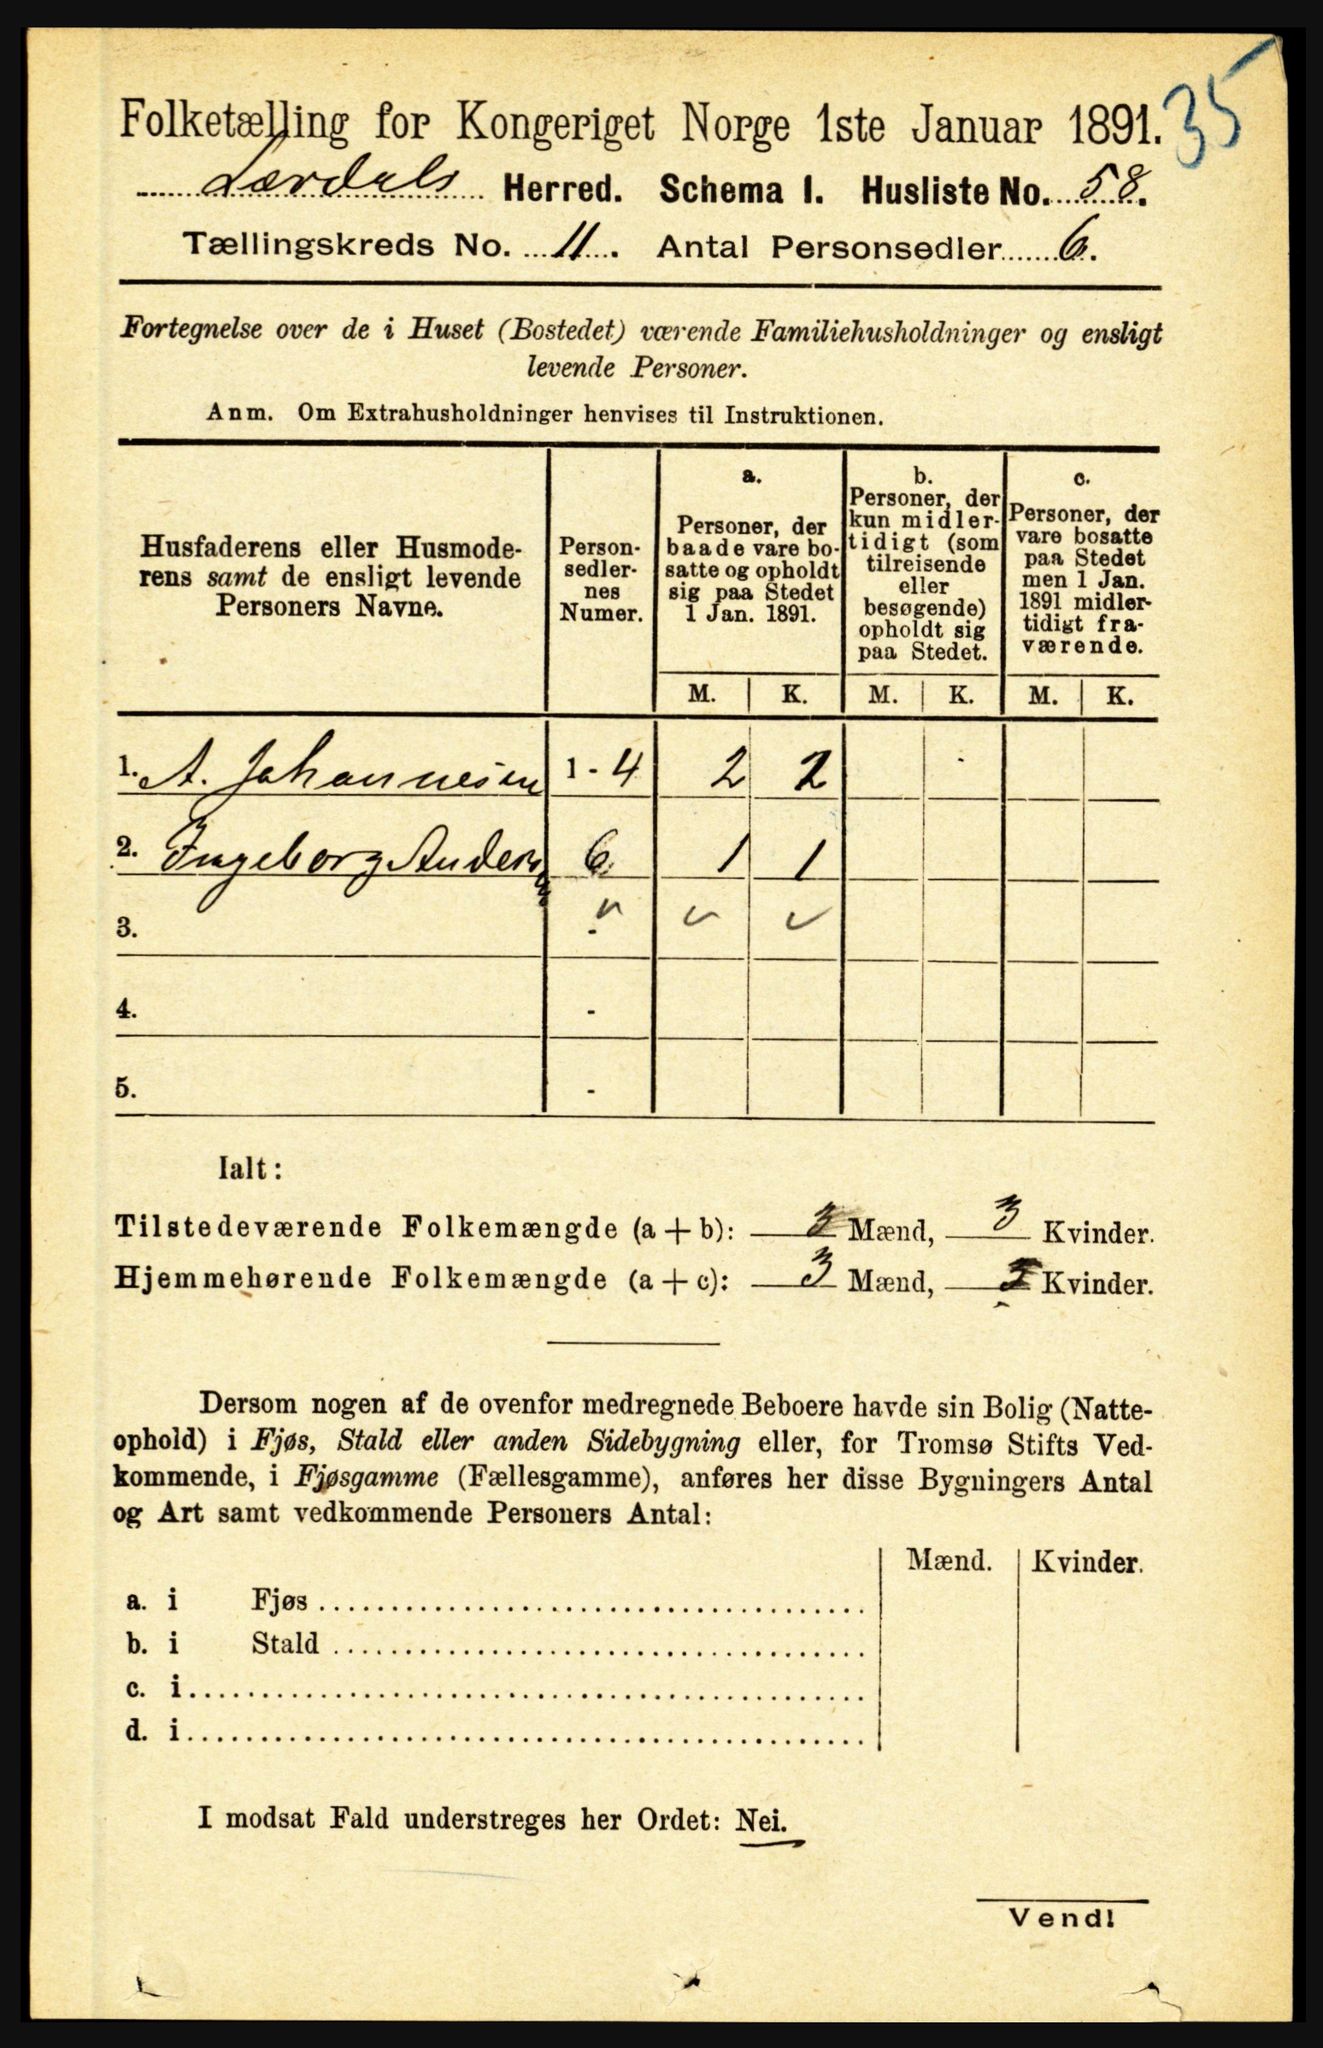 35
Folketælling for Kongeriget Norge 1ste Januar 1891.
Lærdals Herred. Schema I. Husliste No. 58.
Tællingskreds No. 11. Antal Personsedler 6.
Fortegnelse over de i Huset (Bostedet) værende Familiehusholdninger og ensligt
levende Personer.
Anm. Om Extrahusholdninger henvises til Instruktionen.
Husfaderens eller Husmode-
rens samt de ensligt levende
Personers Navne.
Person-
sedler-
nes
Numer.
a.
Personer, der
baade vare bo-
satte og opholdt
sig paa Stedet
1 Jan. 1891.
b.
Personer, der
kun midler-
tidigt (som
tilreisende
eller
besøgende)
opholdt sig
paa Stedet.
c.
Personer, der
vare bosatte
paa Stedet
men 1 Jan.
1891 midler-
tidigt fra-
værende.
M. K. M. K. M. K.
1. A. Johannesen 1 - 4 2 2
2. Ingeborg Anders 6 1 1
3. -
4. -
5. -
Ialt:
Tilstedeværende Folkemængde (a + b): 3 Mænd, 3 Kvinder.
Hjemmehørende Folkemængde (a + c): 3 Mænd, 3 Kvinder.
Dersom nogen af de ovenfor medregnede Beboere havde sin Bolig (Natte-
ophold) i Fjøs, Stald eller anden Sidebygning eller, for Tromsø Stifts Ved-
kommende, i Fjøsgamme (Fællesgamme), anføres her disse Bygningers Antal
og Art samt vedkommende Personers Antal:
Mænd. Kvinder.
a. i Fjøs
b. i Stald
c. i
d. i
I modsat Fald understreges her Ordet: Nei.
Vend!